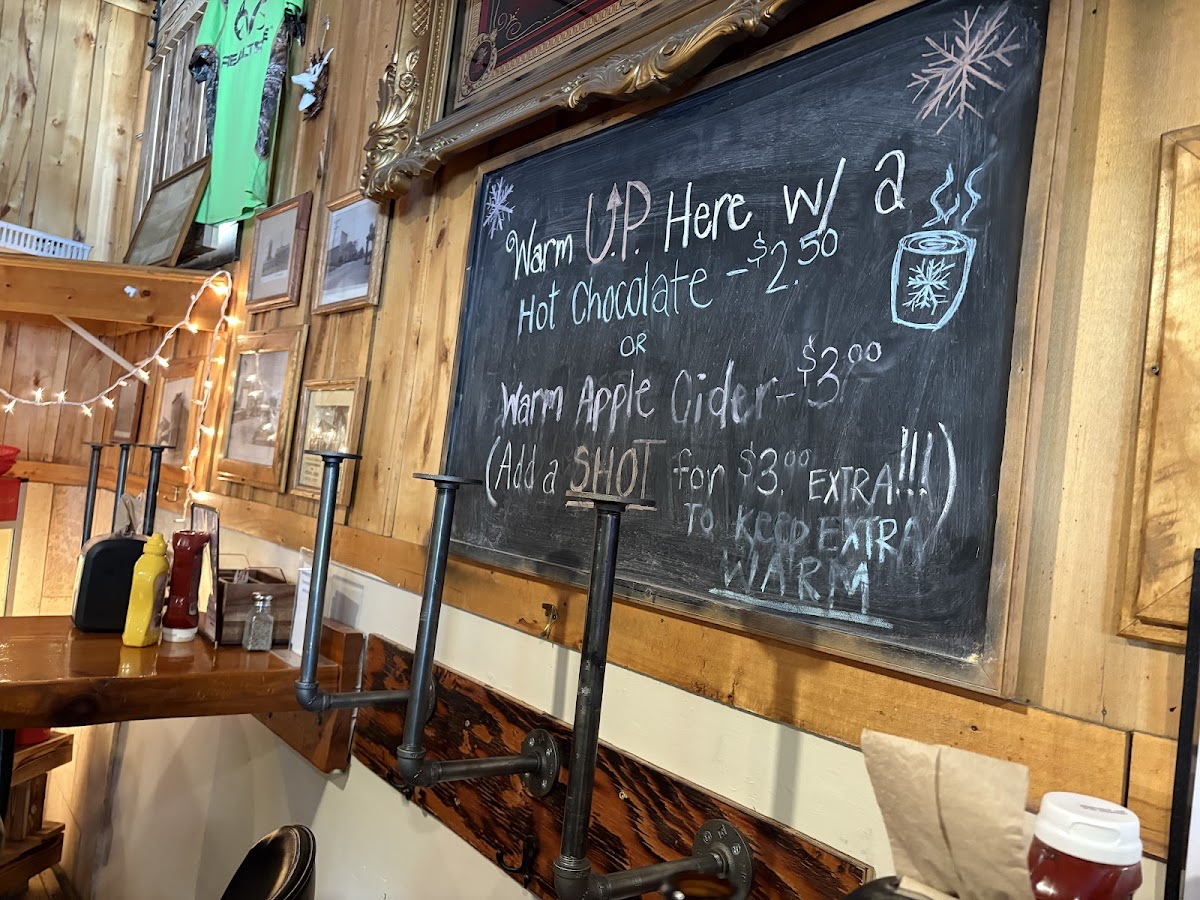 REALTREE
Warm U.P. Here w/ a
Hot Chocolate - $2.50
OR
Warm Apple Cider - $3.00
(Add a SHOT for $3.00 EXTRA!!!)
TO KEEP EXTRA
WARM